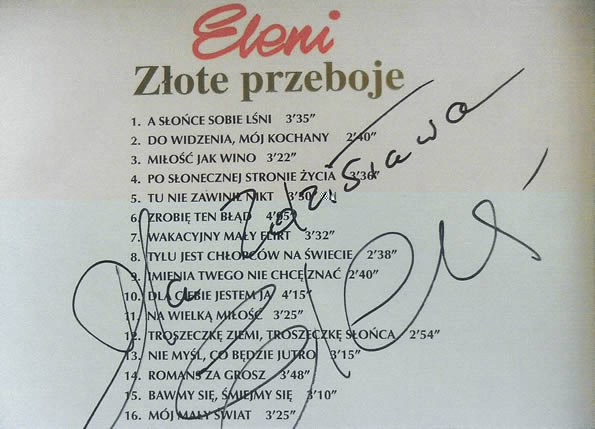 Eleni
Złote przeboje
1. A SŁOŃCE SOBIE LŚNI 3'35"
2. DO WIDZENIA, MÓJ KOCHANY 2'40"
3. MIŁOŚĆ JAK WINO 3'22"
4. PO SŁONECZNEJ STRONIE ŻYCIA 3'36"
5. TU NIE ZAWINIŁ NIKT 3'50"
6. ZROBIĘ TEN BŁĄD 4'05"
7. WAKACYJNY MAŁY FLIRT 3'32"
8. TYLU JEST CHŁOPCÓW NA ŚWIECIE 2'38"
9. IMIENIA TWEGO NIE CHCĘ ZNAĆ 2'40"
10. DLA CIEBIE JESTEM JA 4'15"
11. NA WIELKĄ MIŁOŚĆ 3'25"
12. TROSZECZKĘ ZIEMI, TROSZECZKĘ SŁOŃCA 2'54"
13. NIE MYŚL, CO BĘDZIE JUTRO 3'15"
14. ROMANS ZA GROSZ 3'48"
15. BAWMY SIĘ, ŚMIEJMY SIĘ 3'10"
16. MÓJ MAŁY ŚWIAT 3'25"
Dla Zdzisława
Eleni